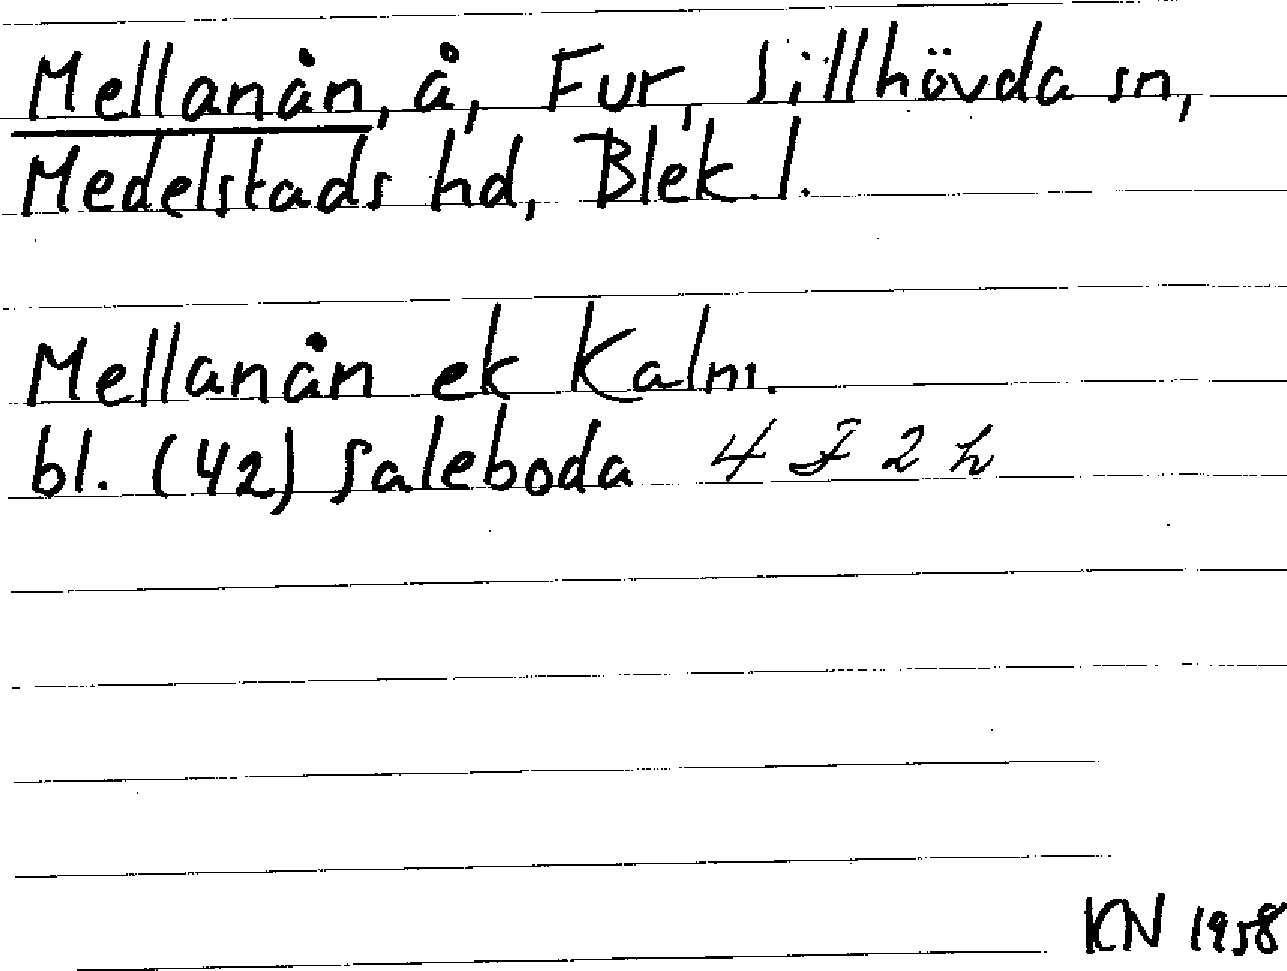 Mellanån, å, Fur, Sillhövda sn,
Medelstads hd, Blek. l.
Mellanån ek Kalm.
bl. (42) Saleboda 4 F 2 h
KN 1958